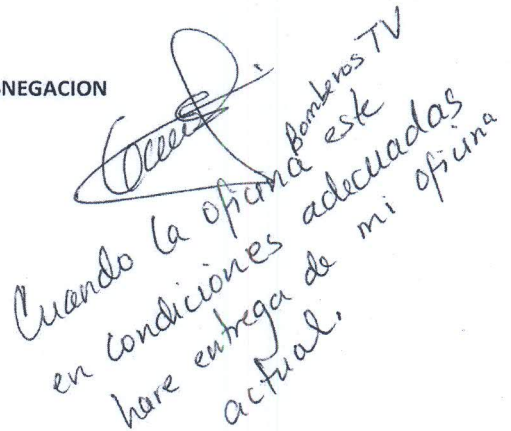 NEGACION
Bomberos TV
Cuando la oficina este
en condiciones adecuadas
hare entrega de mi oficina
actual.